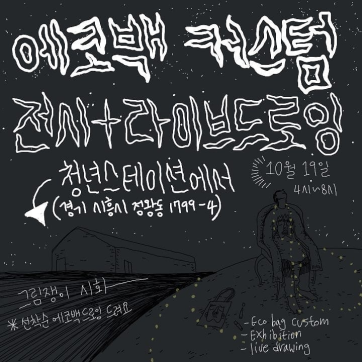 에코백 커스텀
전시+라이브드로잉
청년스테이션에서
(경기 시흥시 정왕동 1799-4)
10월 19일
4시~8시
그림쟁이 시화
* 선착순 에코백드로잉 드려요
- Eco bag custom
- Exhibition
- live drawing